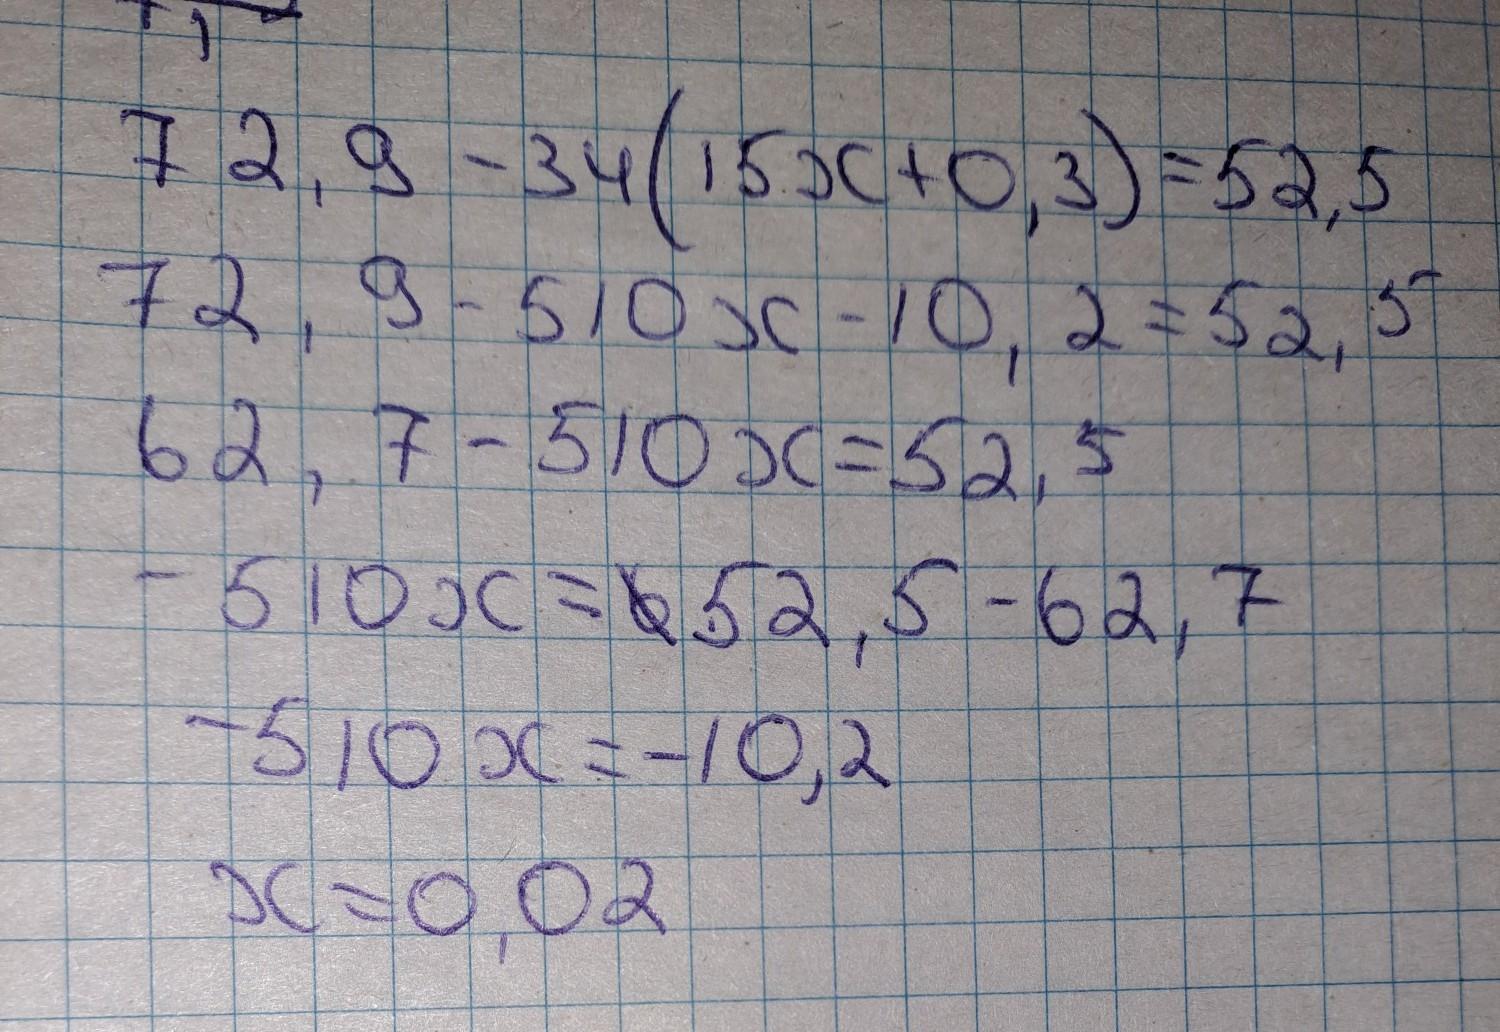 72,9-34(15x+0,3)=52,5
72,9-510x-10,2=52,5
62,7-510x=52,5
-510x=52,5-62,7
-510x=-10,2
x=0,02